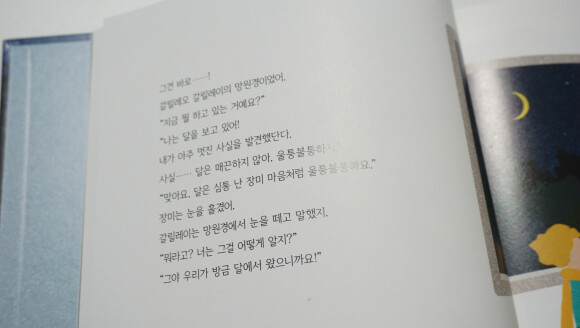 그건 바로……!
갈릴레오 갈릴레이의 망원경이었어.
“지금 뭘 하고 있는 거예요?”
“나는 달을 보고 있어!
내가 아주 멋진 사실을 발견했단다.
사실…… 달은 매끈하지 않아. 울퉁불퉁하지.”
“맞아요. 달은 심통 난 장미 마음처럼 울퉁불퉁해요.”
장미는 눈을 흘겼어.
갈릴레이는 망원경에서 눈을 떼고 말했지.
“뭐라고? 너는 그걸 어떻게 알지?”
“그야 우리가 방금 달에서 왔으니까요!”